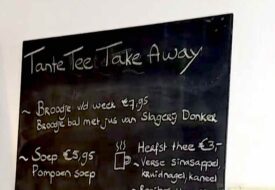 Tante Tee Take Away
~ Broodje v/d week €7,95
Broodje bal met jus van Slagerij Donker
~ Soep €5,95
Pompoen soep
~ Herfst thee €3,-
- Verse sinasappel,
kruidnagel, kaneel